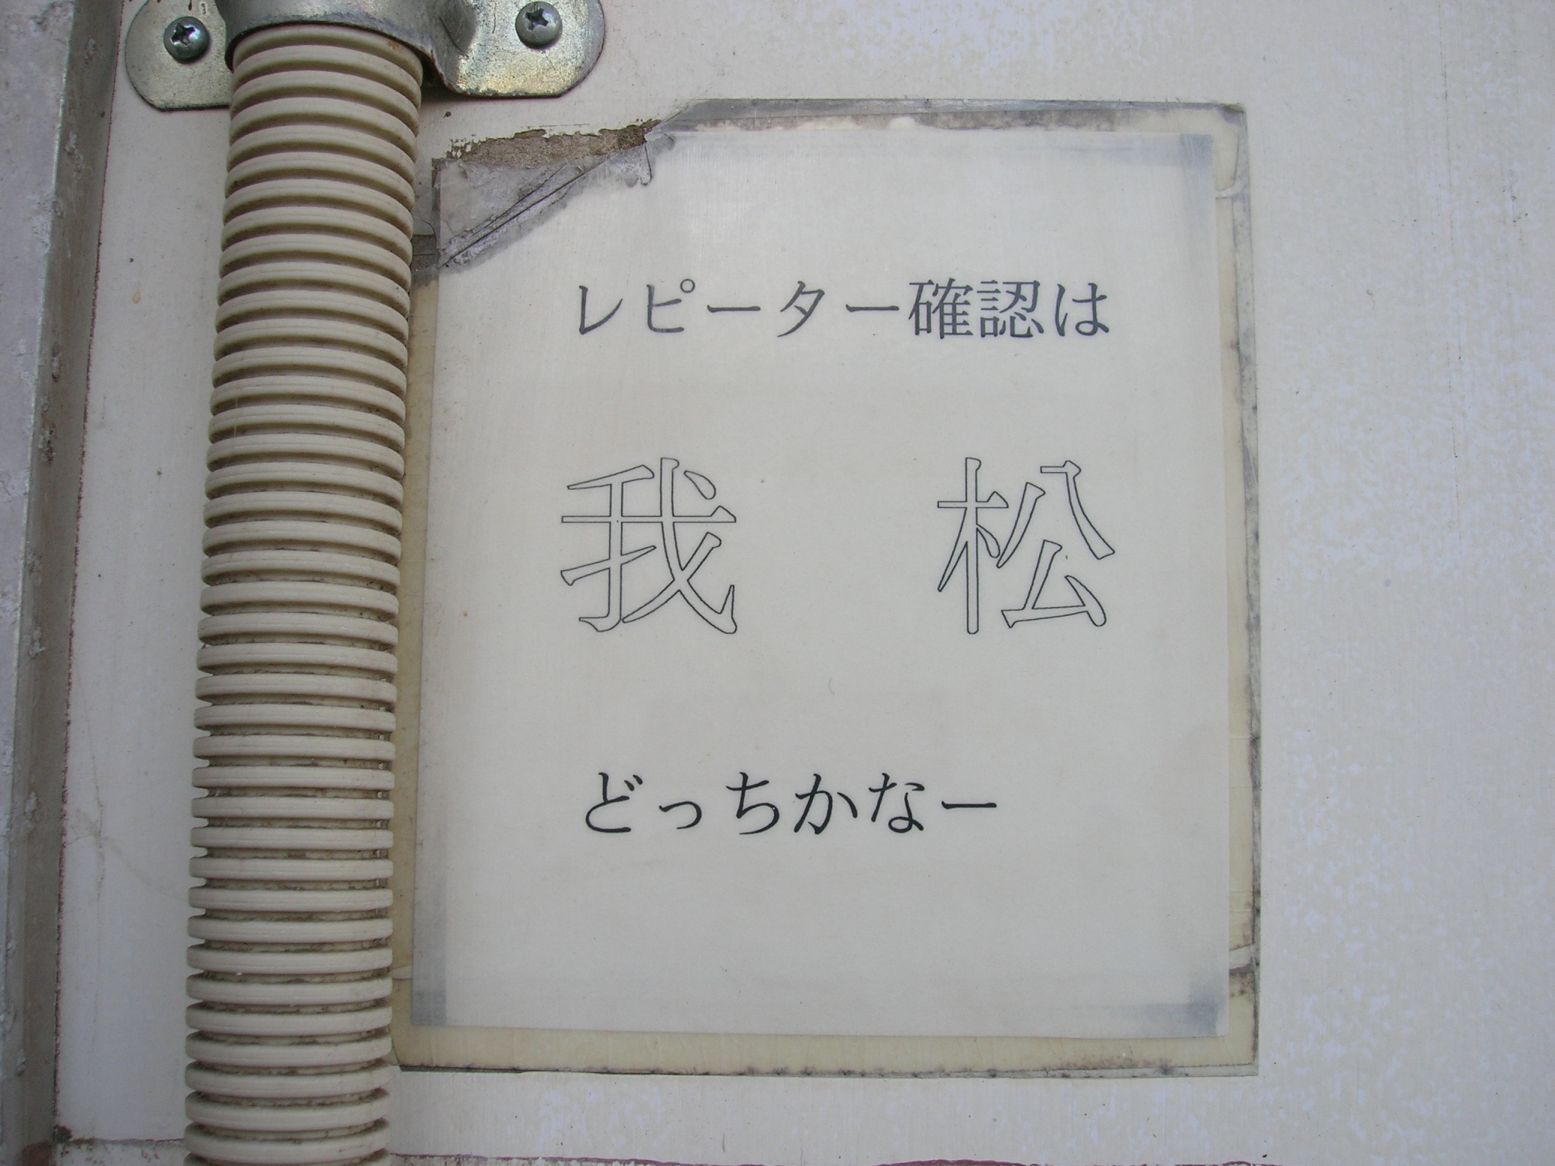 レピーター確認は
我 松
どっちかなー